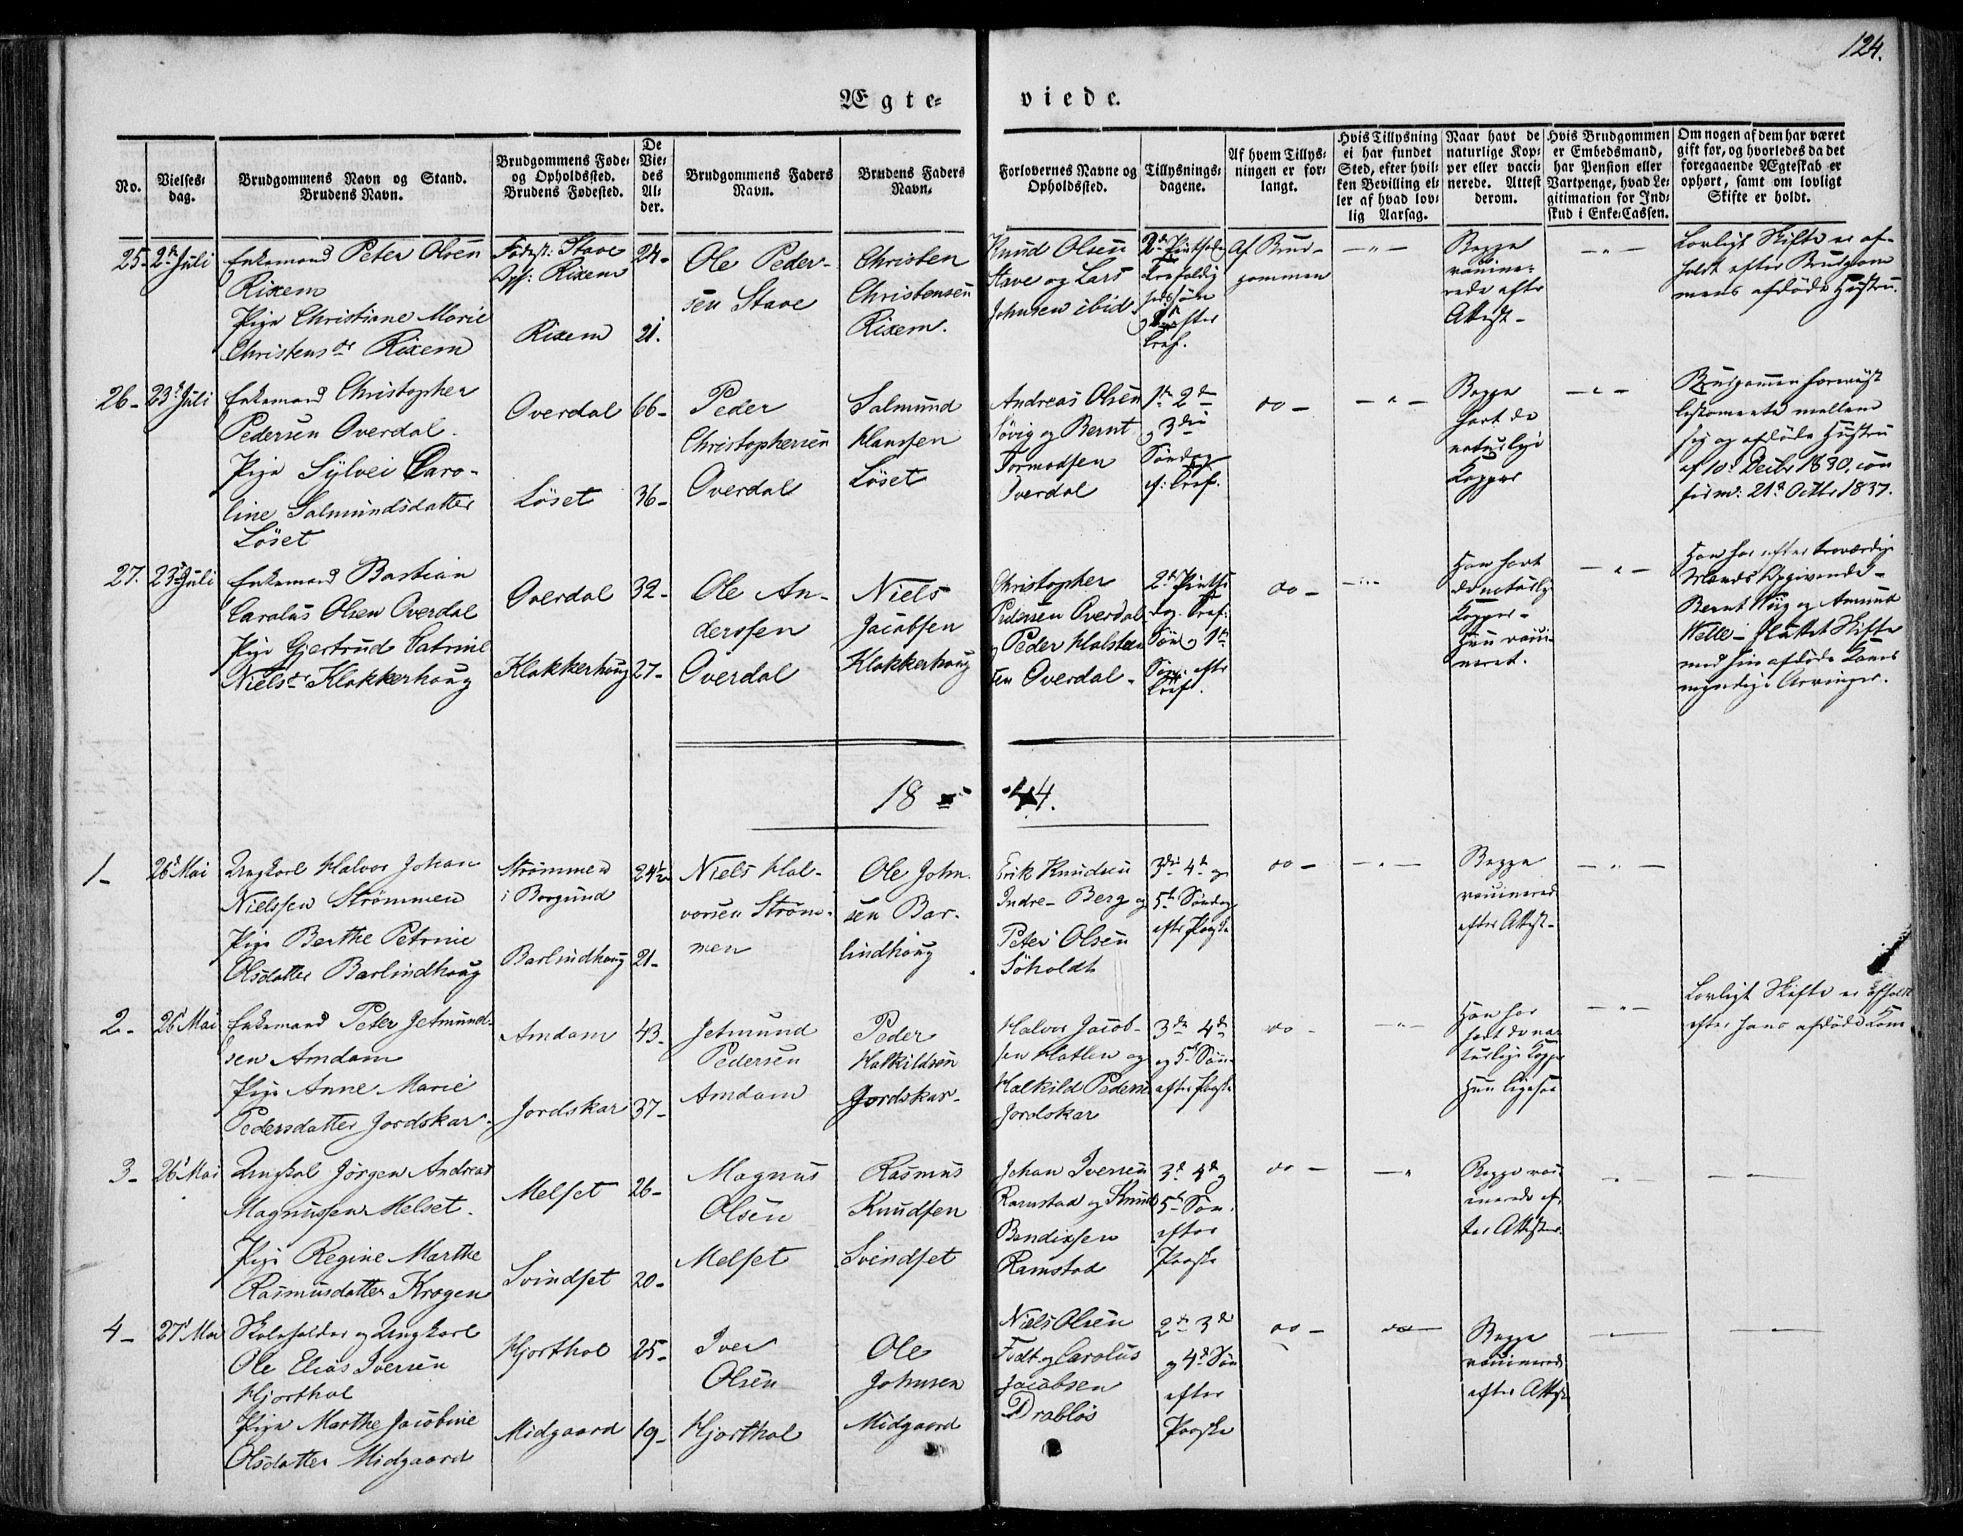 124.
Ægte-
viede.
No.
Vielses-
dag.
Brudgommens Navn og Stand.
Brudens Navn.
Brudgommens Føde-
og Opholdssted.
Brudens Fødested.
De
Vie-
des
Al-
der.
Brudgommens Faders
Navn.
Brudens Faders
Navn.
Forlovernes Navne og
Opholdssted.
Tillysnings-
dagene.
Af hvem Tillys-
ningen er for-
langt.
Hvis Tillysning
ei har fundet
Sted, efter hvil-
ken Bevilling el-
ler af hvad lov-
lig Aarsag.
Naar havt de
naturlige Kop-
per eller vacci-
nerede. Attest
derom.
Hvis Brudgommen
er Embedsmand,
har Pension eller
Vartpenge, hvad Le-
gitimation for Ind-
skud i Enke-Cassen.
Om nogen af dem har været
gift før, og hvorledes da det
foregaaende Ægteskab er
ophørt, samt om lovligt
Skifte er holdt.
25-
2den Juli
Enkemand Peter Olsen
Rixem
Pige Christiane Marie
Christensdr Rixem
Fødest: Stave
Opf: Rixem
Rixem
24-
21.
Ole Peder-
sen Stave
Christen
Christensen
Rixem.
Knud Olsen
Stave og Lars
Johnsen ibid.
Af Brud-
gommen
Begge
vaccine-
rede efter
Attest-
Lovligt Skifte er af-
holdt efter Brudgom
mens afdøde Hustru.
26-
23d Juli
Enkemand Christopher
Pedersen Overdal.
Pige Sylvei Caro-
line Salmundsdatter
Løset
Overdal
Løset
66-
36-
Peder
Christophersen
Overdal
Salmund
Hanssen
Løset
Andreas Olsen
Søvig og Bernt
Tormodsen
Overdal
1te 2de
og 3die
Søndag
e. Tref.
do -
Begge
havt de
naturlige
Kopper
Brudgommen forevist
Testamente mellem
sig og afdøde Hustru
af 10de Decbr 1830, con
firm: 21de Octbr 1837.
27.
23d Juli
Enkemand Bastian
Carolus Olsen Overdal
Pige Gjertrud Catrine
Nielsdr Klokkerhoug
Overdal
Klokkerhoug
32-
27-
Ole An-
derssen
Overdal
Niels
Jacobsen
Klokkerhoug
Christopher
Pedersen Overdal
og Peder Halsteen
sen Overdal-
do -
Han havt
de naturlige
Kopper-
Hun vacci-
neret.
Han har efter troværdige
Mænds Opgivende-
Bernt Vig og Amund
Welle - sluttet Skifte
med sin afdøde Kones
myndige Arvinger.
18 44.
1-
26d Mai
Ungkarl Halvor Johan
Nielssen Strømmen
Pige Berthe Petrine
Olsdatter Barlindhoug
Strømmen
i Borgund
Barlindhoug
24½
21-
Niels Hal-
vorsen Strøm-
men
Ole John-
sen Bar-
lindhoug
Erik Knudsen
Indre- Berg og
Peter Olsen
Søholdt
3die 4de og
5te Søndag
efter Paaske
do -
Begge
vaccinered
efter Attest-
2-
26d Mai
Enkemand Peter Jetmund-
sen Amdam
Pige Anne Marie
Pedersdatter Jordskar.
Amdam
Jordskar
43-
37-
Jetmund
Pedersen
Amdam
Peder
Halkildsen
Jordskar-
Halvor Jacob-
sen Hatlen og
Halkild Pederse
Jordskar
3die 4de
og 5te Søn
efter Paaske
do -
Han har
havt de na-
turlige Koppe
Hun ligesaa
Lovligt Skifte er afholdt
efter hans afdøde Kone
3-
26d Mai
Ungkal Jørgen Andreas
Magnussen Melset.
Pige Regine Marthe
Rasmusdatter Krogen
Melset
Svindset
26-
20-
Magnus
Olsen
Melset
Rasmus
Knudsen
Svindset
Johan Iversen
Ramstad og Knud
Bendixsen
Ramstad
3de 4de og
5te Søn.
efter
Paaske
do -
Begge vac-
cinerede ef-
ter Attester.
4-
27d Mai
Skoleholder og Ungkarl
Ole Elias Iversen
Hjorthol
Pige Marthe Jacobine
Olsdatter Midgaard
Hjorthol
Midgaard
25-
19-
Iver
Olsen
Hjorthol
Ole
Johnsen
Midgaard
Niels Olsen
Todt og Carolus
Jacobsen
Drabløs
2de 3de
og 4de Søn
efter
Paaske
do -
do
Begge
vaccinered
efter Attest